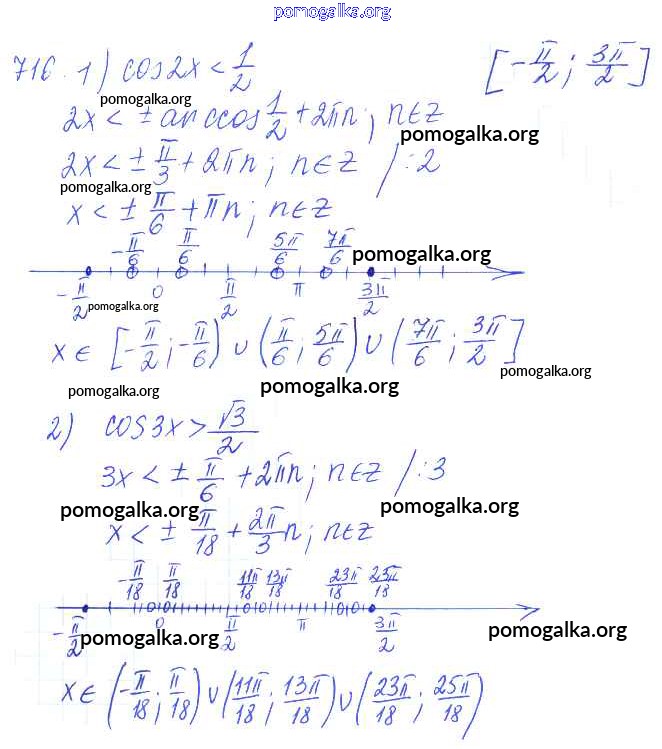 pomogalka.org
716. 1) cos2x < 1/2 [-π/2; 3π/2]
pomogalka.org
2x < ± arccos 1/2 + 2πn; n∈Z
pomogalka.org
2x < ± π/3 + 2πn; n∈Z /:2
pomogalka.org
x < ± π/6 + πn; n∈Z
-π/6 π/6 5π/6 7π/6 pomogalka.org
-π/2 pomogalka.org 0 π/2 π 3π/2
x∈ [-π/2; -π/6) ∪ (π/6; 5π/6) ∪ (7π/6; 3π/2]
pomogalka.org pomogalka.org pomogalka.org
2) cos3x > √3/2
3x < ± π/6 + 2πn; n∈Z /:3
pomogalka.org pomogalka.org
x < ± π/18 + 2π/3 n; n∈Z
-π/18 π/18 11π/18 13π/18 23π/18 23π/18
-π/2 0 π/2 π 3π/2
pomogalka.org pomogalka.org
x∈ (-π/18; π/18) ∪ (11π/18; 13π/18) ∪ (23π/18; 25π/18)